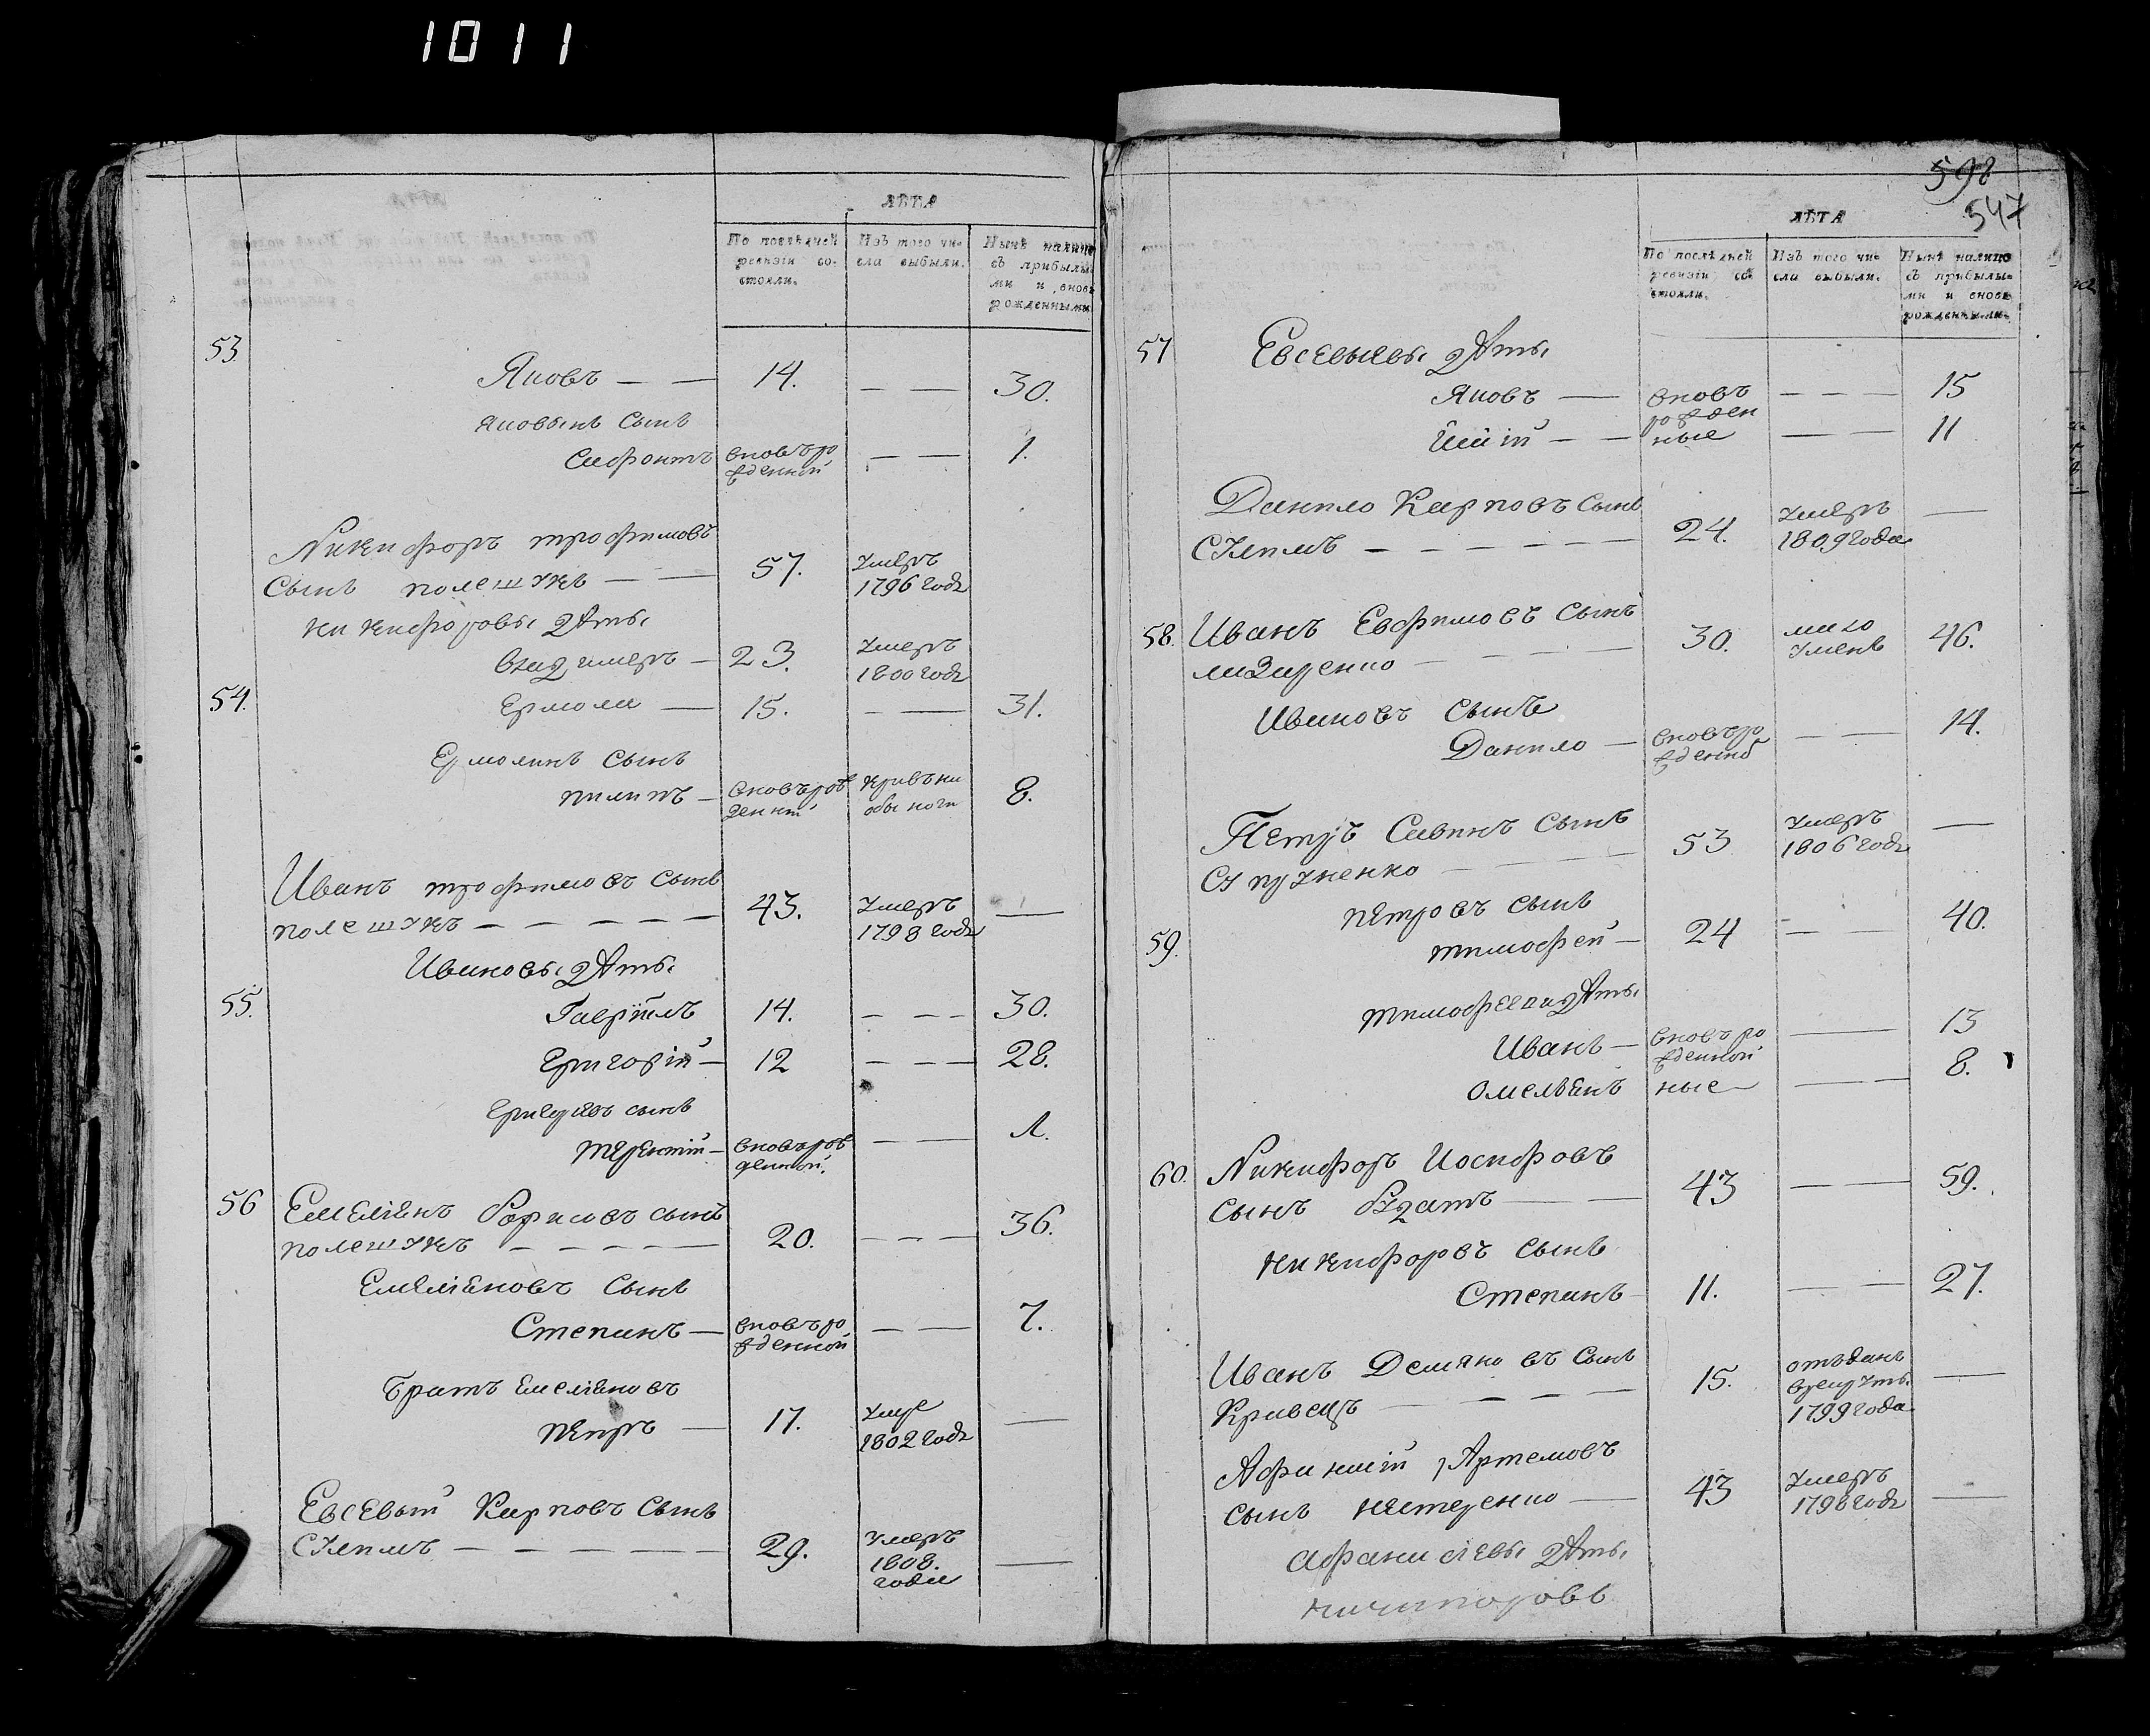 1011
ЛѢТА
По послѣдней ревизіи состояли.
Изъ того числа выбыли.
Нынѣ налицо съ прибылыми и вновь рожденными
53.
Яковъ — — 14. — — 30.
Яковьинъ сынъ
вновъро
жденной — — 1.
Никифоръ трофимовъ
сынъ полешукъ — — 57. умеръ
1796 года
никифоровы дѣти
владимеръ — 23. умеръ
1800 года
54. Ермола — 15. — — 31.
Ермолинъ сынъ
пилипъ — вновърож
денній
кривъ на
обы ноги 8.
Иванъ трофимовъ сынъ
полешукъ — — — — — 43. умеръ
1798 года —
Ивановы дѣти
55. Гавріилъ 14. — — — 30.
Григорій — 12 — — — 28.
сынъ
терентій — вновърож
денной. — — 1.
56 Емеліянъ Борисовъ сынъ
полешукъ — — — — — 20. — — — 36.
Емеліяновъ сынъ
Степанъ — вновъро
жденной — — 7.
Братъ Емеліяновъ
петръ — 17. умре
1802 года —
Евсевый Карповъ сынъ
— — — — — — 29. умеръ
1808.
года —
598
547
ЛѢТА
По послѣдней ревизіи состояли.
Изъ того числа выбыли.
Нынѣ налицо съ прибылыми и вновь рожденными
57 Евсевыевы дѣти
Яковъ — вновъ
рожден — — — 15
— — ные — — 11
Данило Карповъ сынъ
— — — — — — 24. умеръ
1809 года —
58. Иванъ Евфимовъ сынъ
лазаренко — — — — 30. мало
уменъ 46.
Ивановъ сынъ
Данило — вновъро
жденной — — 14.
Петръ Савинъ сынъ
— — — 53 умеръ
1806 года —
петровъ сынъ
59. тимофей — 24 — — 40.
дѣти
Иванъ — вновъ ро
жденной — 13
омельянъ ные — — 8.
60. Никифоръ Иосифовъ
сынъ — — 43 — — 59.
никифоровъ сынъ
Степанъ 11. — — 27.
Иванъ Демяновъ сынъ
Кравецъ — — — — 15. отъданъ
врекруты
1799 года —
Афанасій Артемовъ
сынъ нестеренко — 43 умеръ
1798 года —
афанасіевы дѣти
ничипоровъ